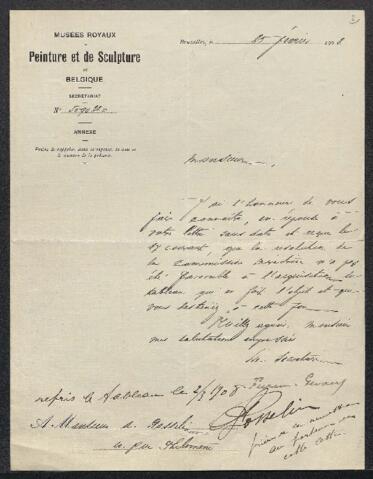 MUSÉES ROYAUX
DE
Peinture et de Sculpture
DE
BELGIQUE
SECRÉTARIAT
N°
ANNEXE
Prière de rappeler, dans la réponse, la date et
le numéro de la présente.
Bruxelles, le 25 février 1908.
Monsieur,
J'ai l'honneur de vous
faire connaître, en réponse à
votre lettre sans date et reçue le
courant, que la résolution de
la Commission directrice n'a pas
été favorable à l'acquisition du
tableau qui en fait l'objet et que
vous destiniez à cette fin.
Veuillez agréer, Monsieur
mes salutations
Le Secrétaire
repris le tableau le 2/3 1908
A Monsieur de
rue Philomène
prière de remettre
au porteur de
cette lettre